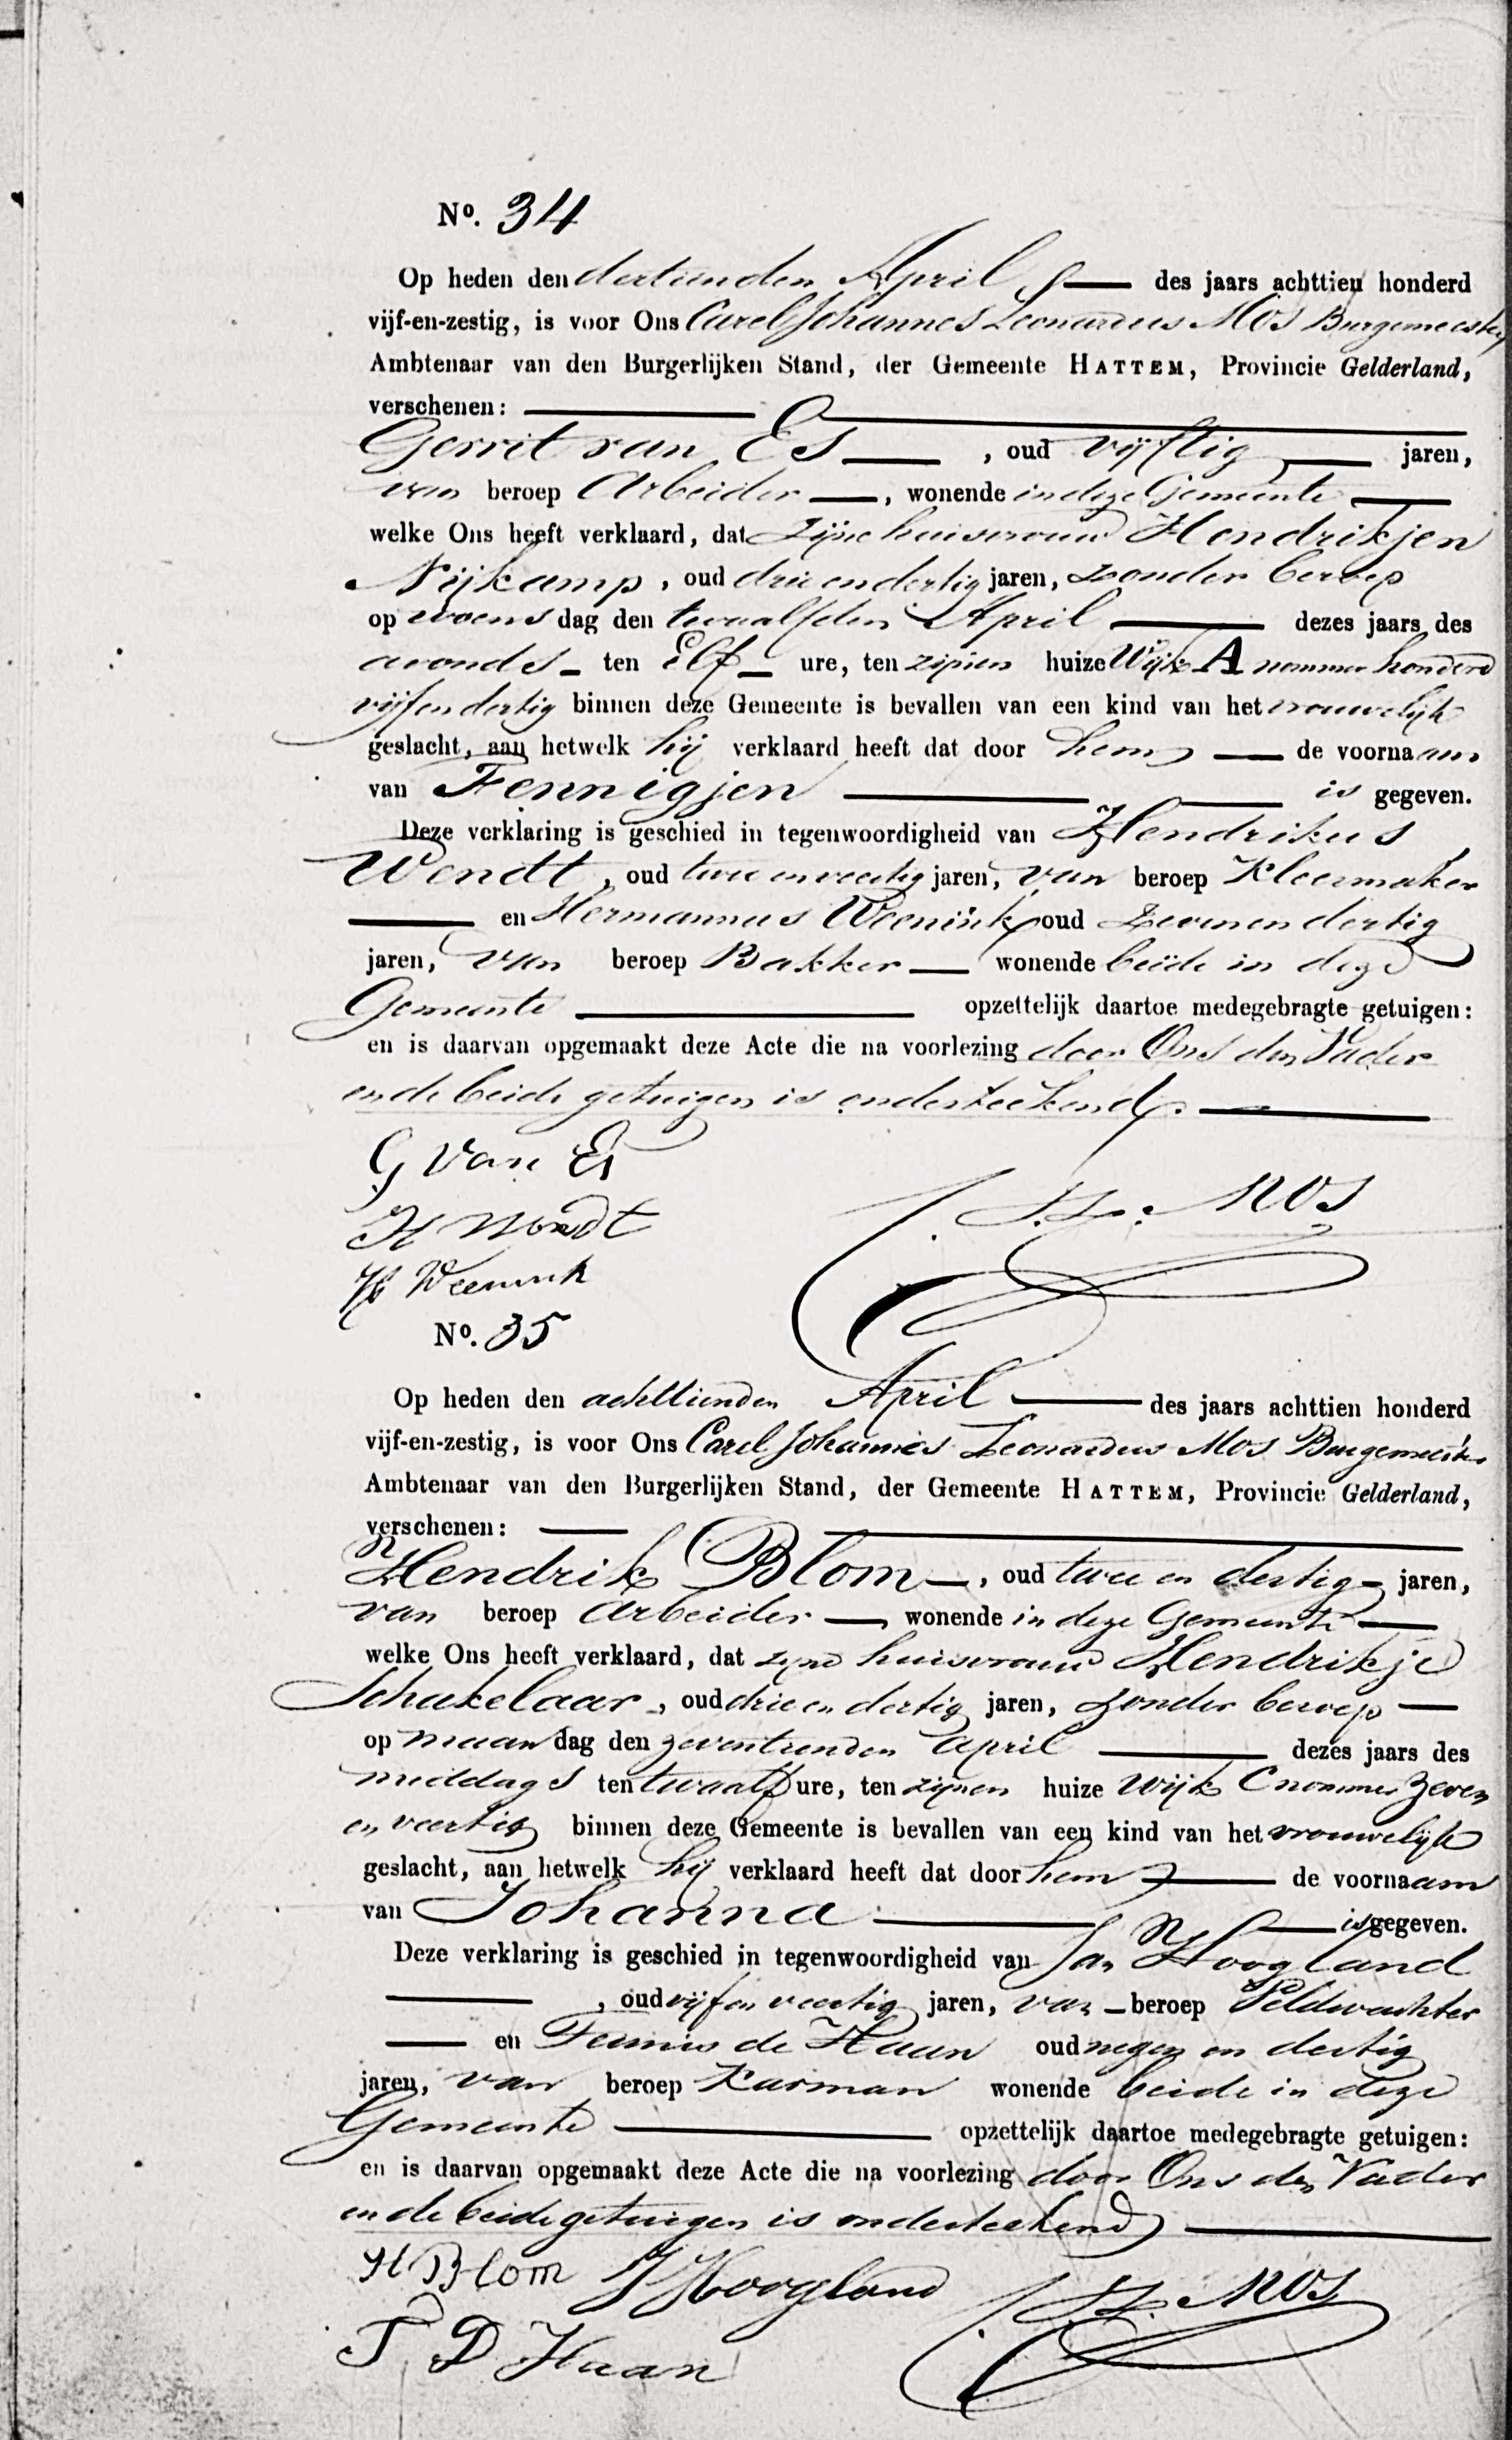 Nº. 34
Op heden den dertienden April des jaars achttien honderd
vijf-en-zestig, is voor Ons Carel Johannes Leonardus Mos Burgemeester
Ambtenaar van den Burgerlijken Stand, der Gemeente HATTEM, Provincie Gelderland,
verschenen:
Gerrit van Es, oud vijftig jaren,
van beroep Arbeider, wonende in deze Gemeente
welke Ons heeft verklaard, dat zijne huisvrouw Hendrikjen
Nijkamp, oud drie en dertig jaren, zonder beroep
op woensdag den twaalfden April dezes jaars des
avonds ten Elf ure, ten zijnen huize Wijk A nommer honderd
vijf en dertig binnen deze Gemeente is bevallen van een kind van het vrouwelijk
geslacht, aan hetwelk hij verklaard heeft dat door hem de voornaam
van Fennigjen is gegeven.
Deze verklaring is geschied in tegenwoordigheid van Hendrikus
Wendt, oud twee en veertig jaren, van beroep Kleermaker
en Hermannus Weenink, oud zeven en dertig
jaren, van beroep Bakker wonende beide in deze
Gemeente opzettelijk daartoe medegebragte getuigen:
en is daarvan opgemaakt deze Acte die na voorlezing door Ons den Vader
en de beide getuigen is onderteekend.
G van Es
H Wendt
H Weenink
Mos
Nº. 35
Op heden den achttienden April des jaars achttien honderd
vijf-en-zestig, is voor Ons Carel Johannes Leonardus Mos Burgemeester
Ambtenaar van den Burgerlijken Stand, der Gemeente HATTEM, Provincie Gelderland,
verschenen:
Hendrik Blom, oud twee en dertig jaren,
van beroep Arbeider, wonende in deze Gemeente
welke Ons heeft verklaard, dat zyne huisvrouw Hendrikje
Schakelaar, oud drie en dertig jaren, zonder beroep
op maandag den zeventienden April dezes jaars des
middags ten twaalf ure, ten zijnen huize Wijk C nommer zeven
en veertig binnen deze Gemeente is bevallen van een kind van het vrouwelijk
geslacht, aan hetwelk hij verklaard heeft dat door hem de voornaam
van Johanna is gegeven.
Deze verklaring is geschied in tegenwoordigheid van Jan Hoogland
, oud vijf en veertig jaren, van beroep Veldwachter
en Teunis de Haan oud negen en dertig
jaren, van beroep Karman wonende beide in deze
Gemeente opzettelijk daartoe medegebragte getuigen:
en is daarvan opgemaakt deze Acte die na voorlezing door Ons den Vader
en de beide getuigen is onderteekend
H Blom J Hoogland
Mos
T D Haan